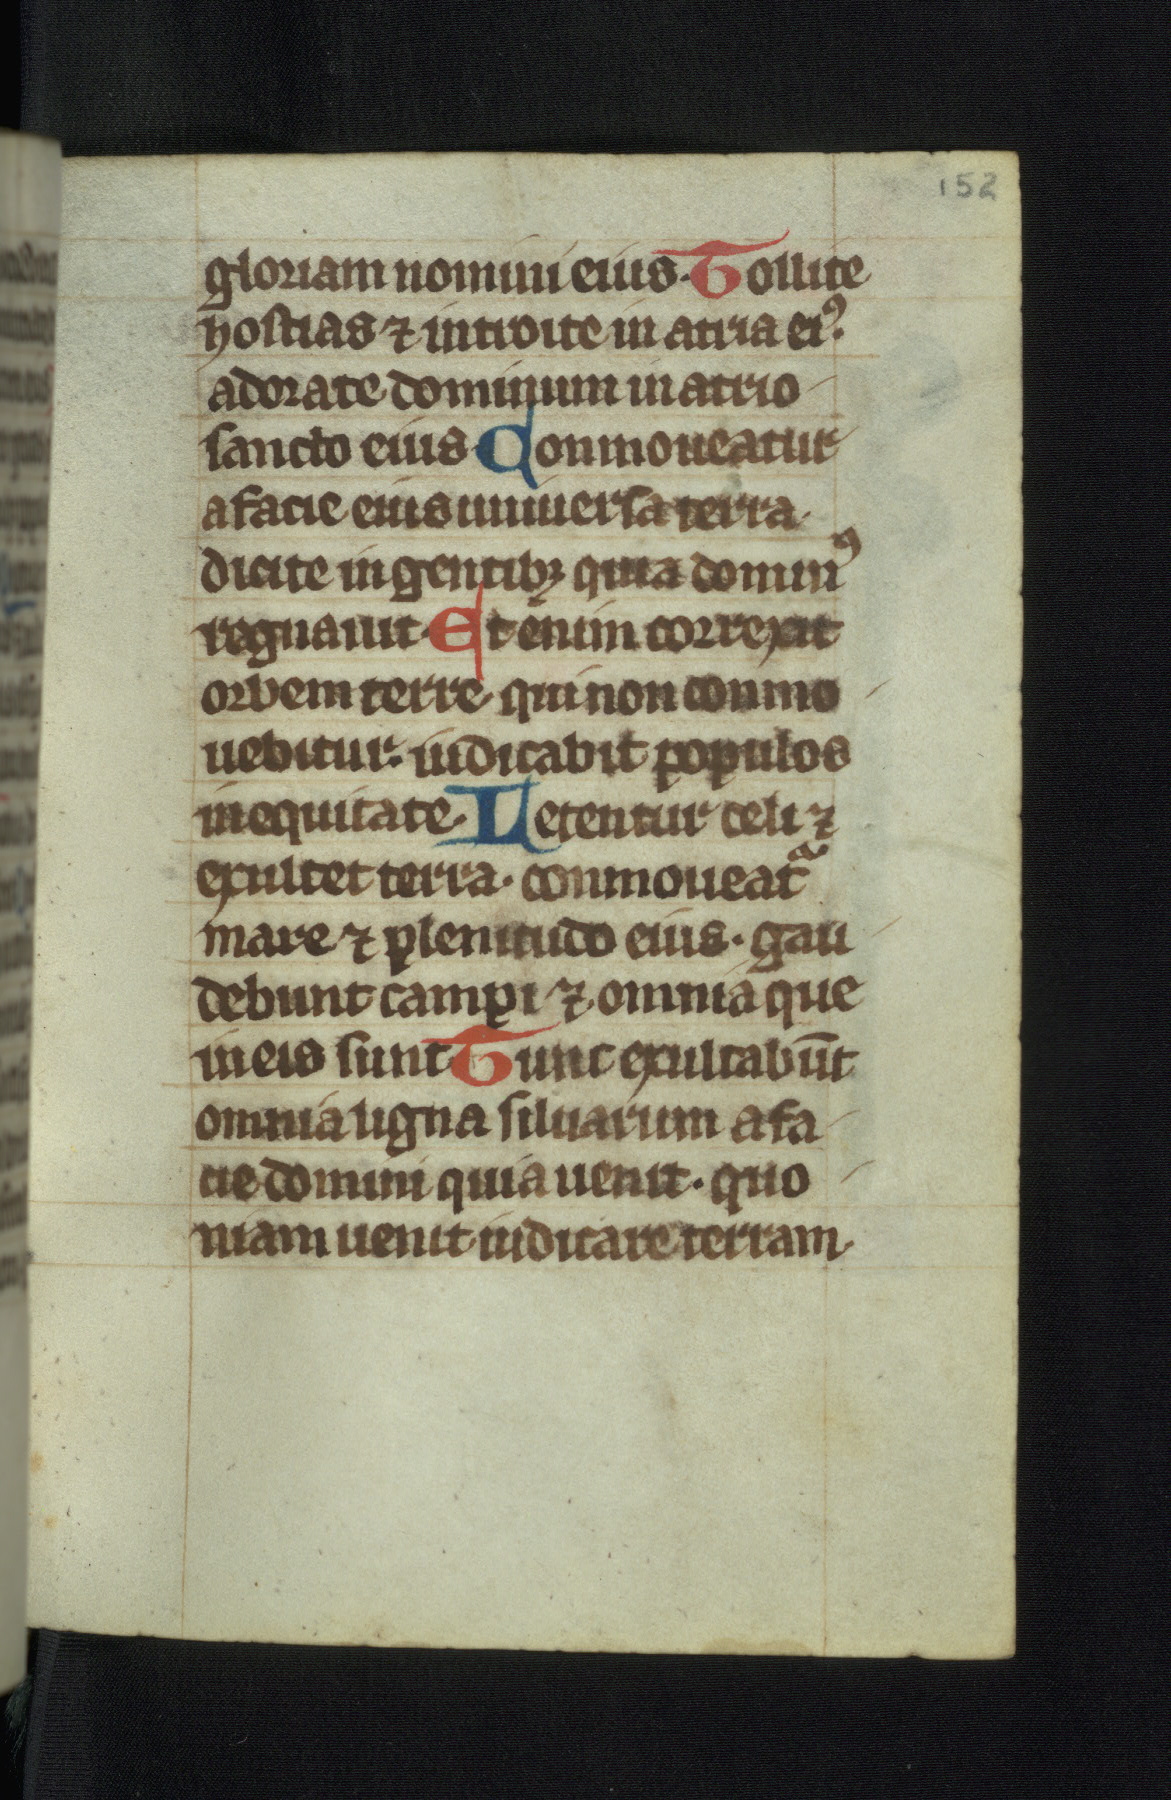 152
gloriam nomini eius. Tollite
hostias ⁊ introite in atria ei⁹.
adorate dominum in atrio
sancto eius Conmoueatur
a facie eius uniuersa terra.
dicite in gentibꝫ quia domin⁹
regnauit. Et enim correxit
orbem terre. qui non conmo
uebitur. iudicabit populos
in equitate. Letentur celi ⁊
exultet terra. conmoueat᷑
mare ⁊ plenitudo eius. gau
debunt campi ⁊ omnia que
in eis sunt. Tunc exultabūt
omnia ligna siluarum a fa
cie domini quia uenit. quo
niam uenit iudicare terram.